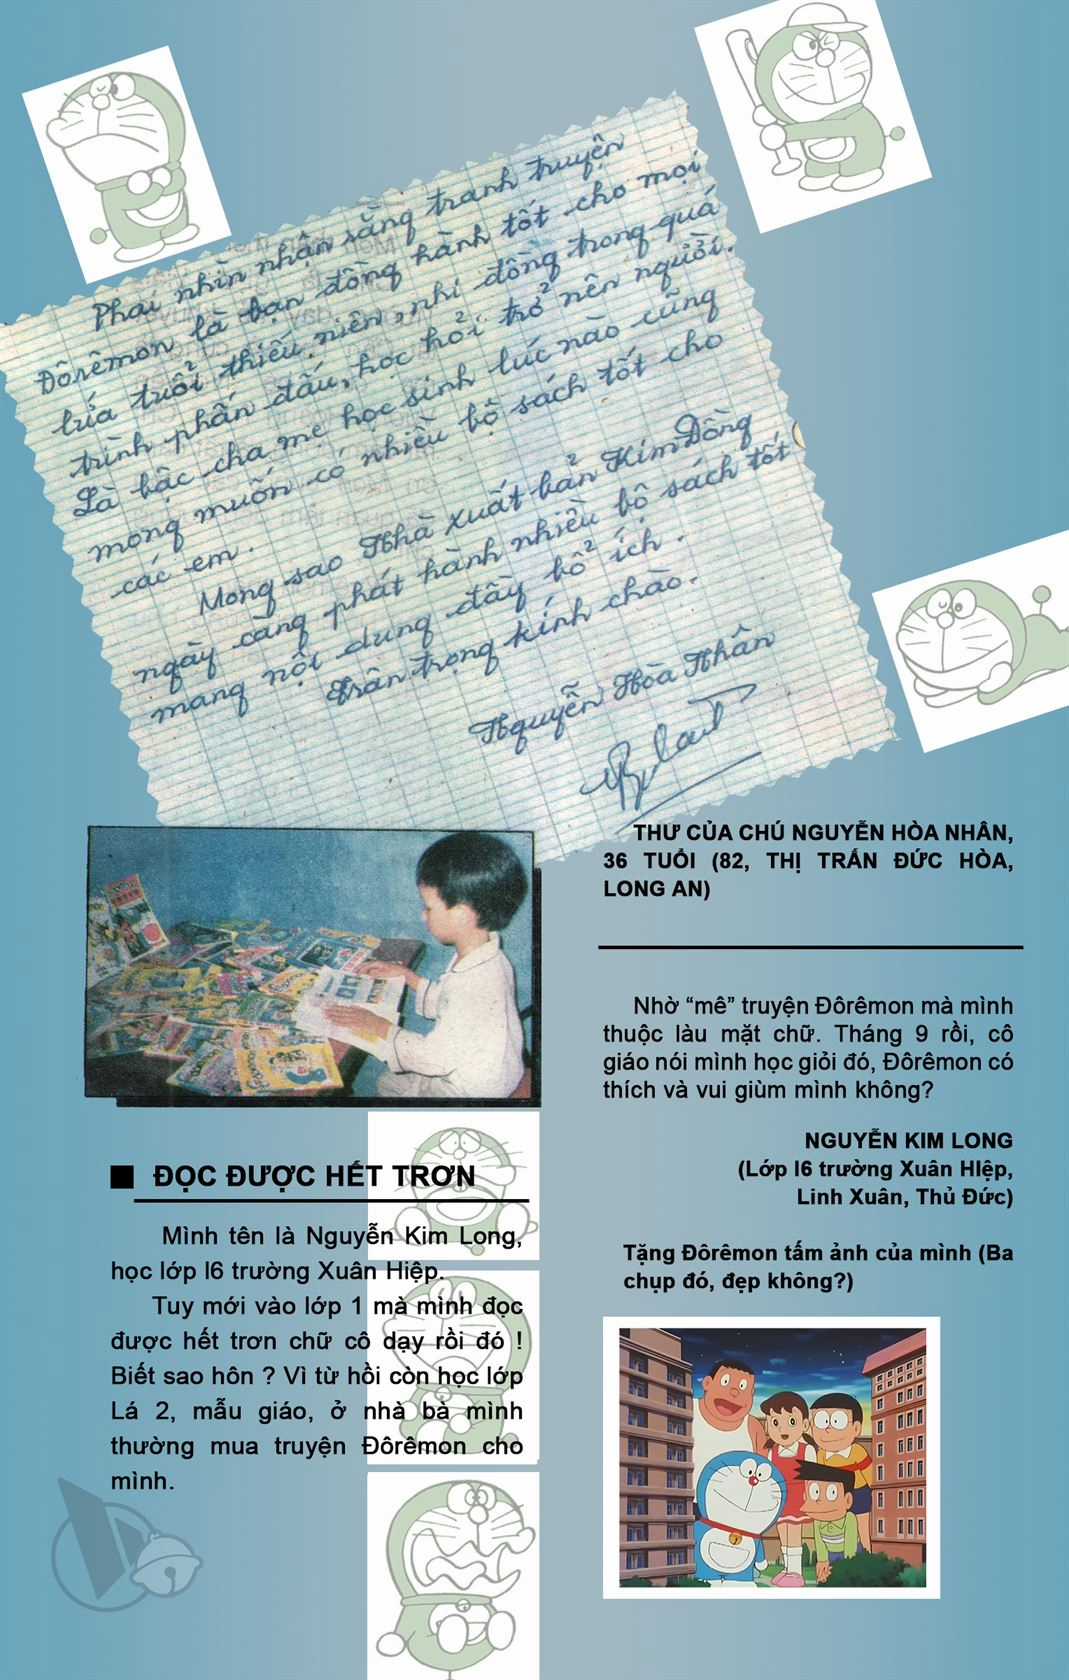 Phải nhìn nhận rằng tranh truyện
Đôrêmon là bạn đồng hành tốt cho mọi
lứa tuổi thiếu niên, nhi đồng trong quá
trình phấn đấu, học hỏi trở nên người.
Là bậc cha mẹ học sinh lúc nào cũng
mong muốn có nhiều bộ sách tốt cho
các em.
Mong sao Nhà xuất bản Kim Đồng
ngày càng phát hành nhiều bộ sách tốt
mang nội dung đầy bổ ích.
Trân trọng kính chào.
Nguyễn Hòa Nhân
THƯ CỦA CHÚ NGUYỄN HÒA NHÂN,
36 TUỔI (82, THỊ TRẤN ĐỨC HÒA,
LONG AN)
Nhờ “mê” truyện Đôrêmon mà mình
thuộc làu mặt chữ. Tháng 9 rồi, cô
giáo nói mình học giỏi đó, Đôrêmon có
thích và vui giùm mình không?
NGUYỄN KIM LONG
(Lớp I6 trường Xuân HIệp,
Linh Xuân, Thủ Đức)
Tặng Đôrêmon tấm ảnh của mình (Ba
chụp đó, đẹp không?)
ĐỌC ĐƯỢC HẾT TRƠN
Mình tên là Nguyễn Kim Long,
học lớp I6 trường Xuân Hiệp.
Tuy mới vào lớp 1 mà mình đọc
được hết trơn chữ cô dạy rồi đó !
Biết sao hôn ? Vì từ hồi còn học lớp
Lá 2, mẫu giáo, ở nhà bà mình
thường mua truyện Đôrêmon cho
mình.